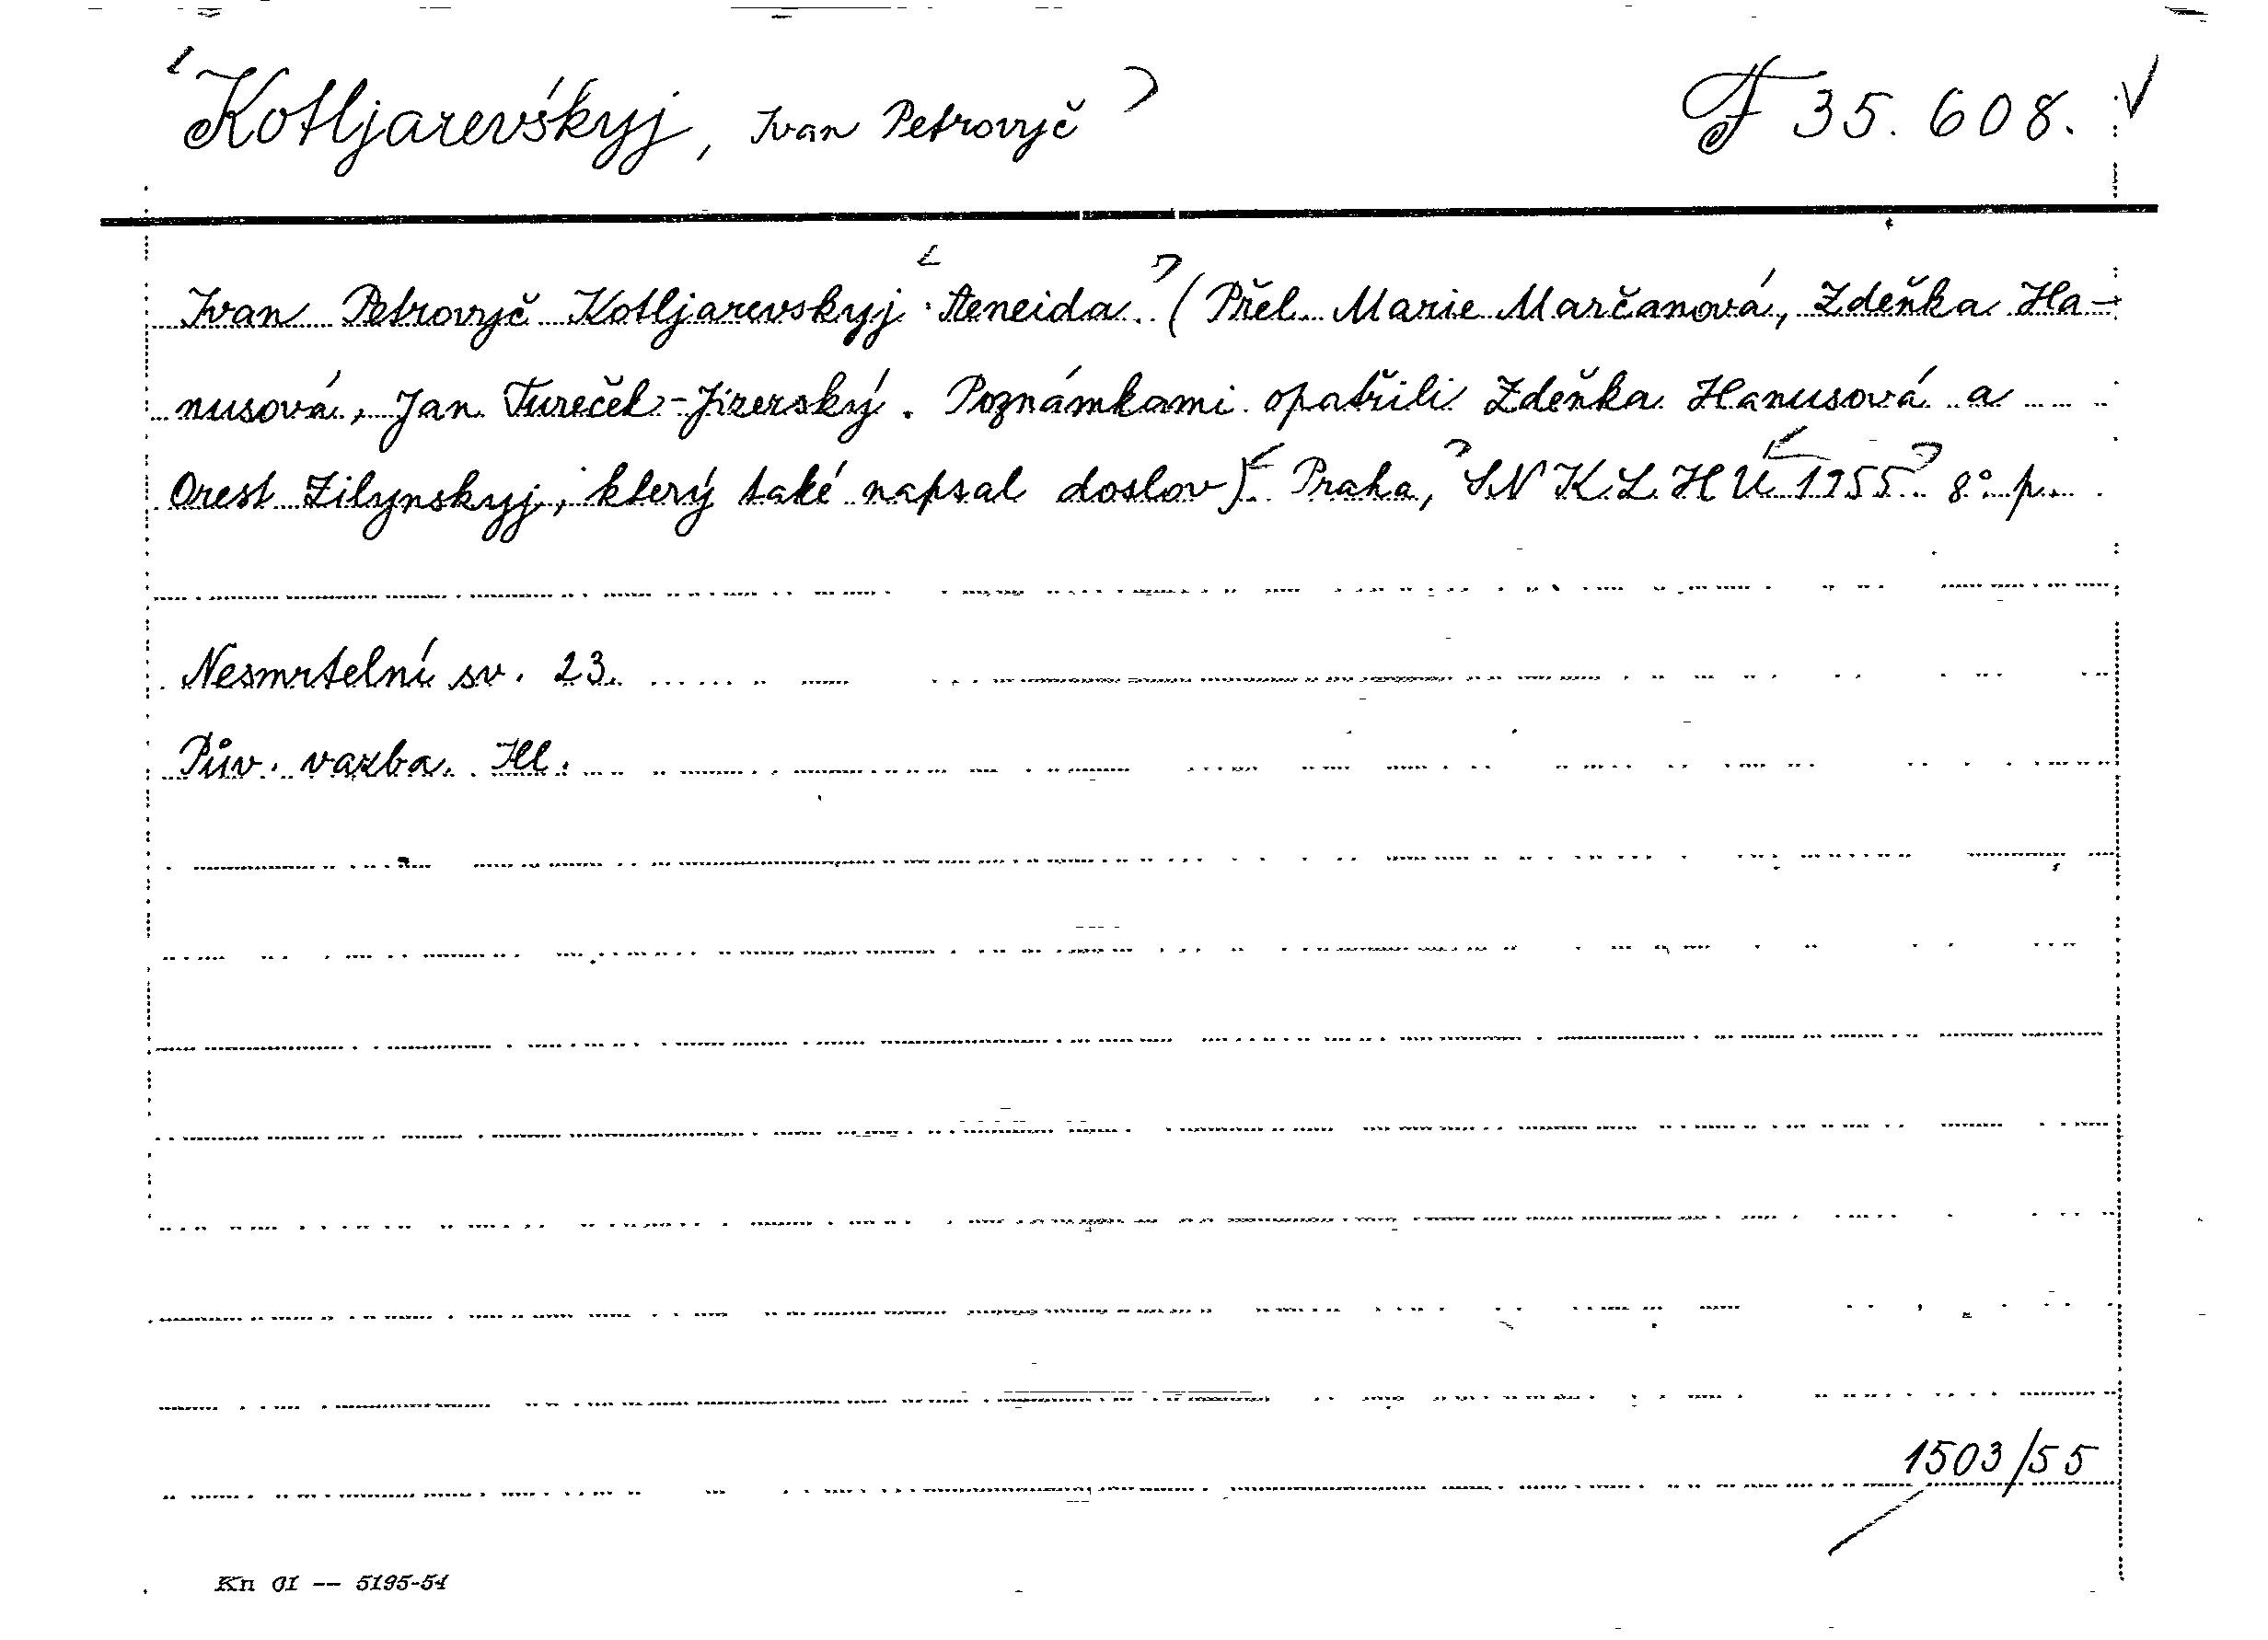 Kotljarevśkyj, Ivan Petrovyč
F 35.608.
Ivan Petrovyč Kotljarevskyj : Aeneida. (Přel. Marie Marčanová, Zdeňka Ha-
nusová, Jan Tureček-Jizerský. Poznámkami opatřili Zdeňka Hanusová a
Orest Zilynskyj, který také napsal doslov). Praha, SNKLHU 1955. 8° p.
Nesmrtelní sv. 23.
Pův. vazba. Ill.
1503/55
Kn 01 -- 5195-54